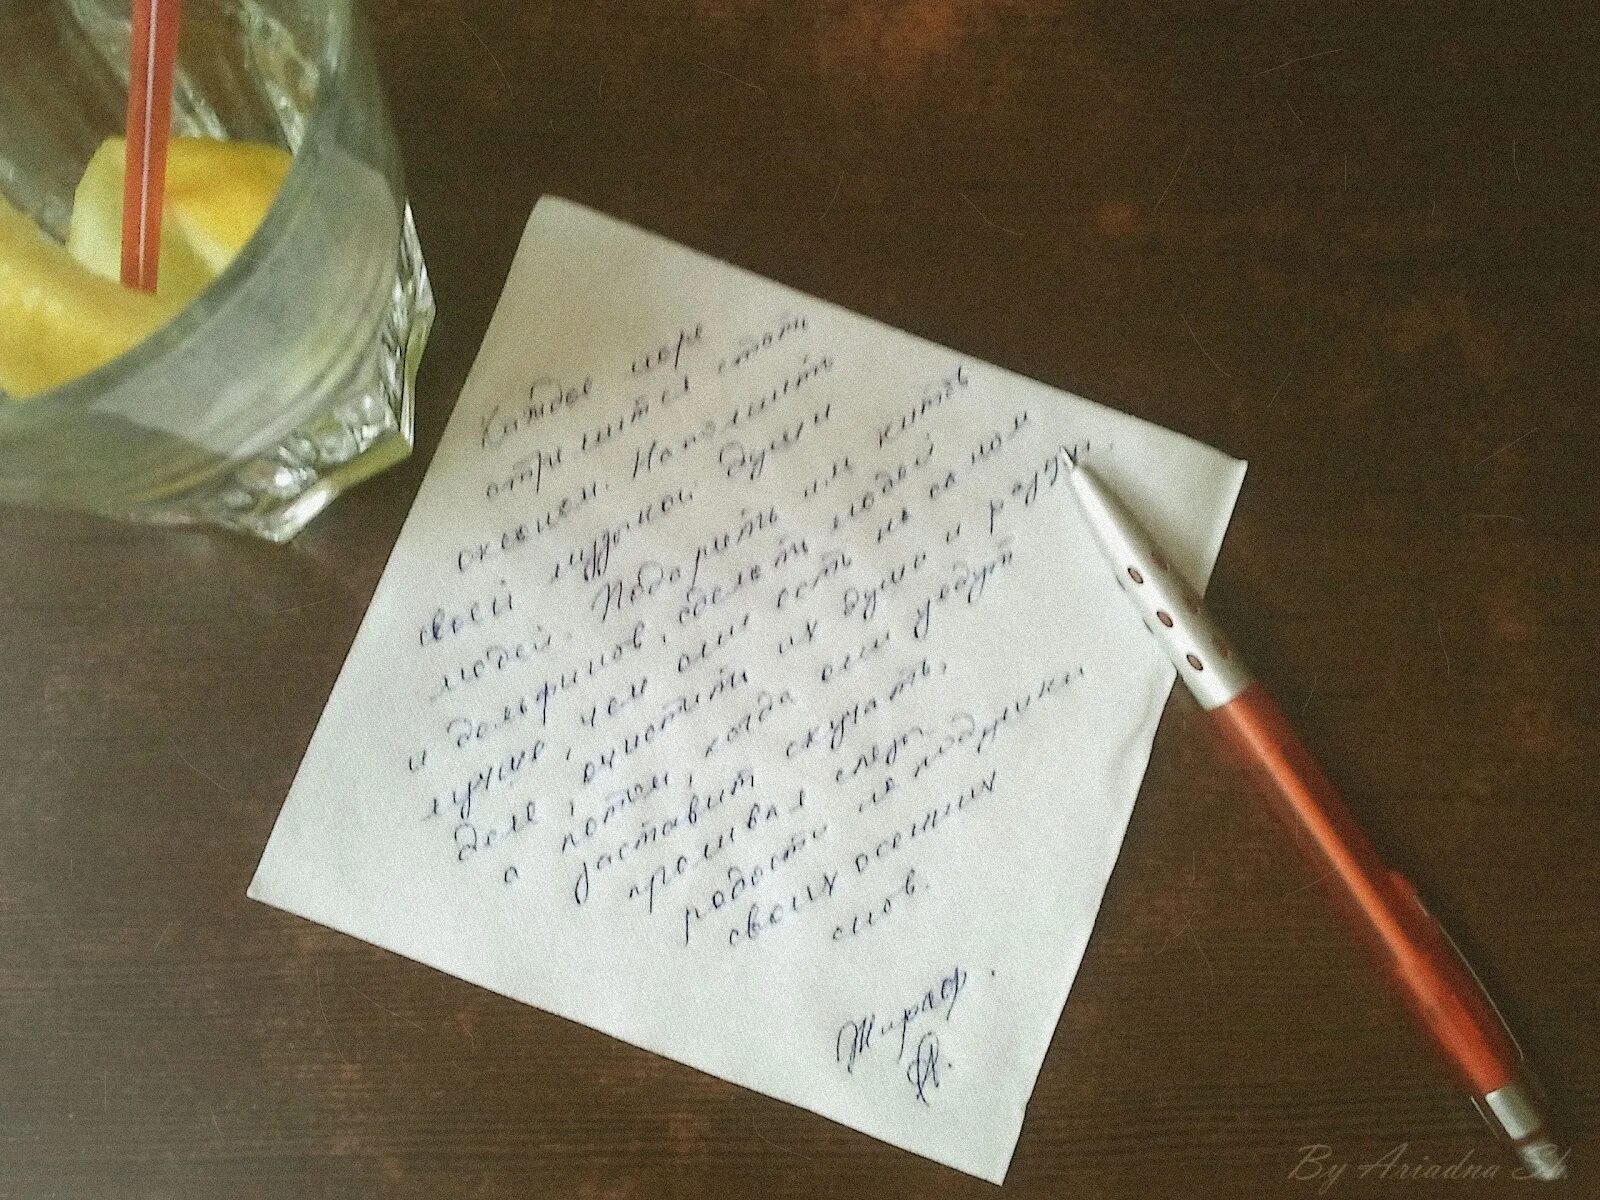 Каждое море
стремится стать
океаном. Наполнить
своей музыкой души
людей. Подарить им китов
и дельфинов, сделать людей
лучше, чем они есть на самом
деле, очистить их души и разум.
а потом, когда они уедут
заставит скучать,
проливая следы
радости на подушки
своих осенних
снов.
Жираф.
By Ariadna Sh.